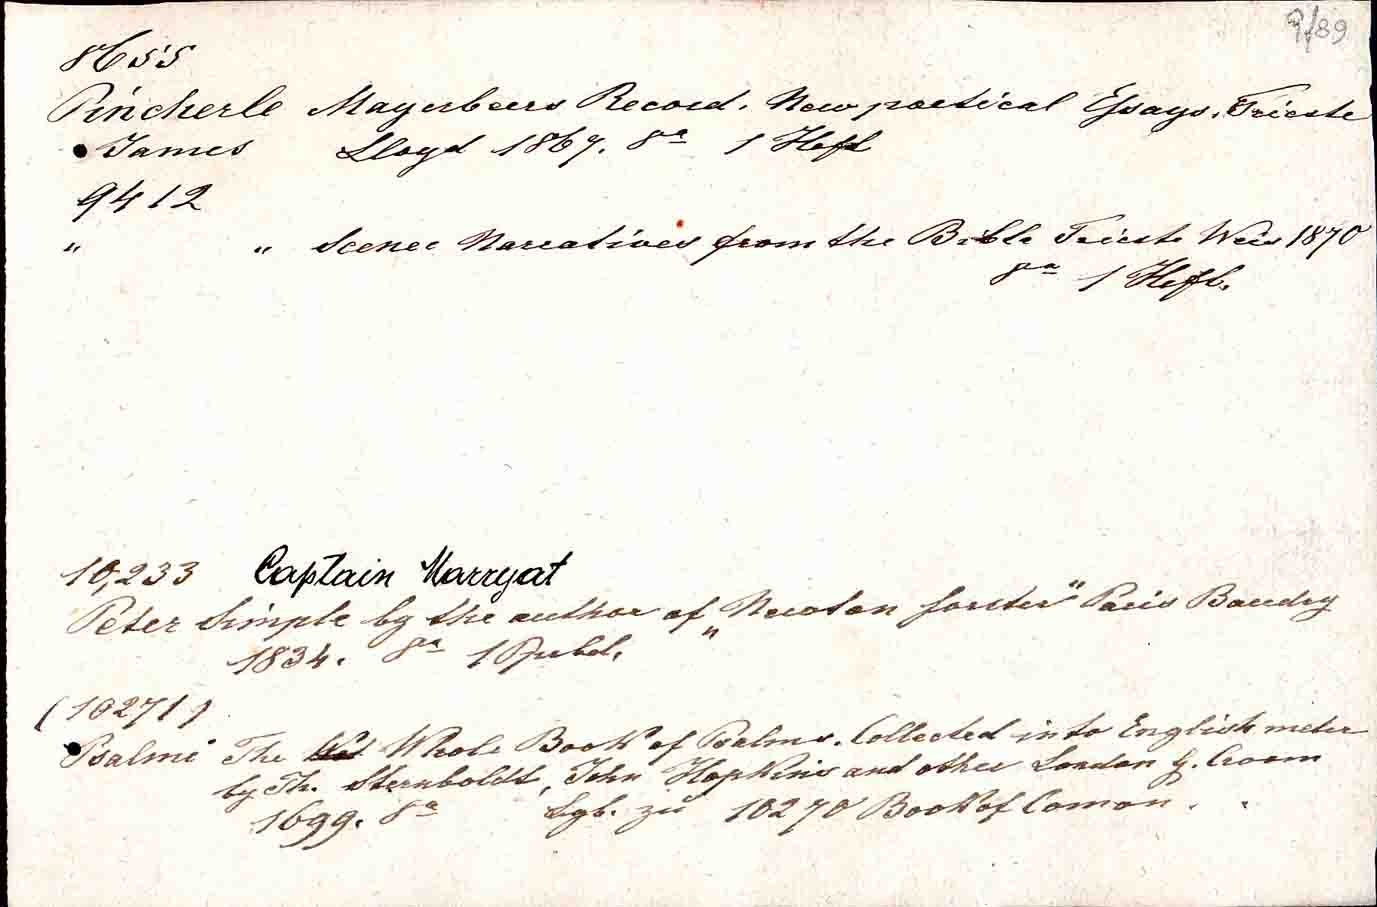 9/89
8655
Pincherle Mayerbeers Record. New poetical Essays. Trieste
James Lloyd 1867. 8a 1 Heft
9412
" " Scenec Narratives from the Bible Trieste Weis 1870
8a 1 Heft.
10,233 Captain Marryat
Peter Simple by the author of "Newton forster" Paris Baudry
1834. 8a 1
(10271)
Psalmi The Whole Book of Psalms. Collected into English meter
by Th. Sternboldt, John Hopkins and other London G. Croom
1699. 8a Zgb. zu 10270 Book of Comon.